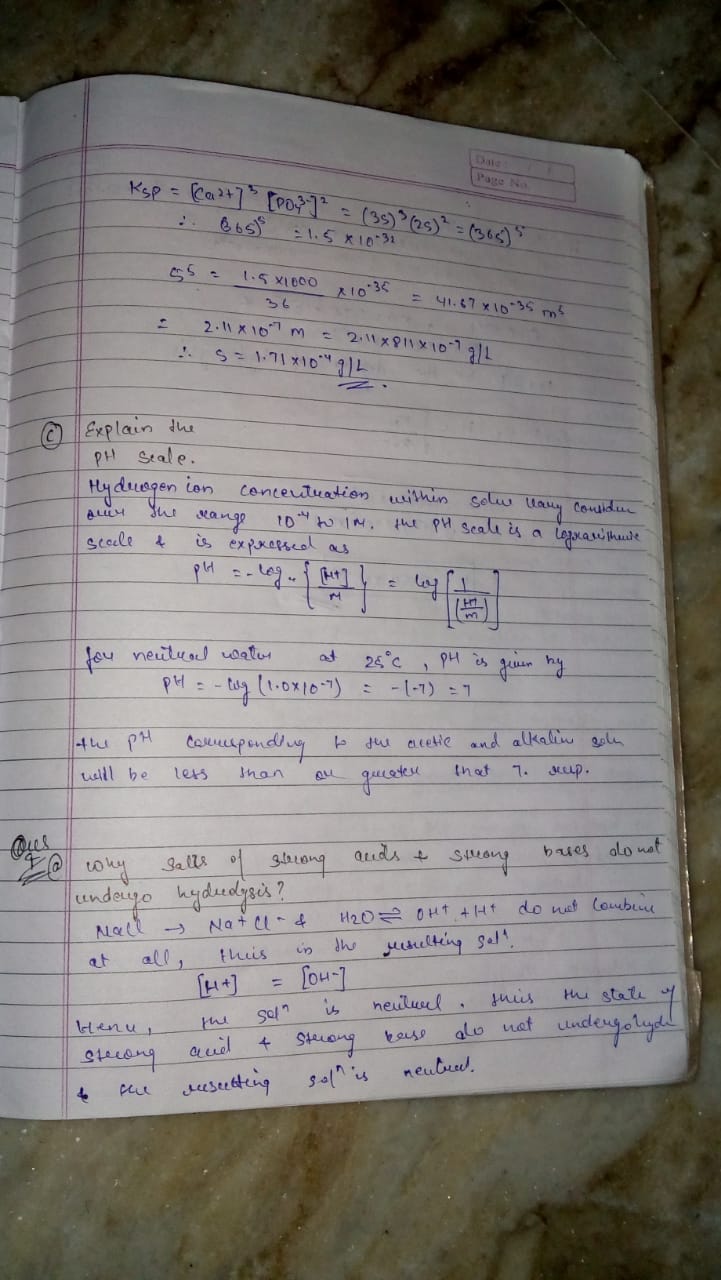 Date: / /
Page No.
Ksp = [Ca2+]3 [PO43-]2 = (3s)3 (2s)2 = (36s)5
∴ (36s)5 = 1.5 × 10-32
S5 = 1.5 × 1000 / 36 × 10-35 = 41.67 × 10-35 m5
= 2.11 × 10-7 m = 2.11 × 811 × 10-7 g/L
∴ S = 1.71 × 10-4 g/L
(C) Explain the
pH Scale.
Hydrogen ion concentration within soln vary
over the range 10-4 to 1M. the pH scale is a logarithmic
scale & is expressed as
pH = - log { [H+] / M } = log [ 1 / ([H+] / m) ]
for neutral water at 25°C, pH is given by
pH = - log (1.0×10-7) = -(-7) = 7
the pH corresponding to the acetic and alkalin soln
will be less than or greater that 7. resp.
Ques 4 (a) Why Salts of strong acids & strong bases do not
undergo hydrolysis?
NaCl → Na+ Cl- & H2O ⇌ OH+ + H+ do not combine
at all, thus in the resulting soln.
[H+] = [OH-]
Hence, the soln is neutral. thus the state of
strong acid & strong base do not undergo hyde
& the resulting soln is neutral.